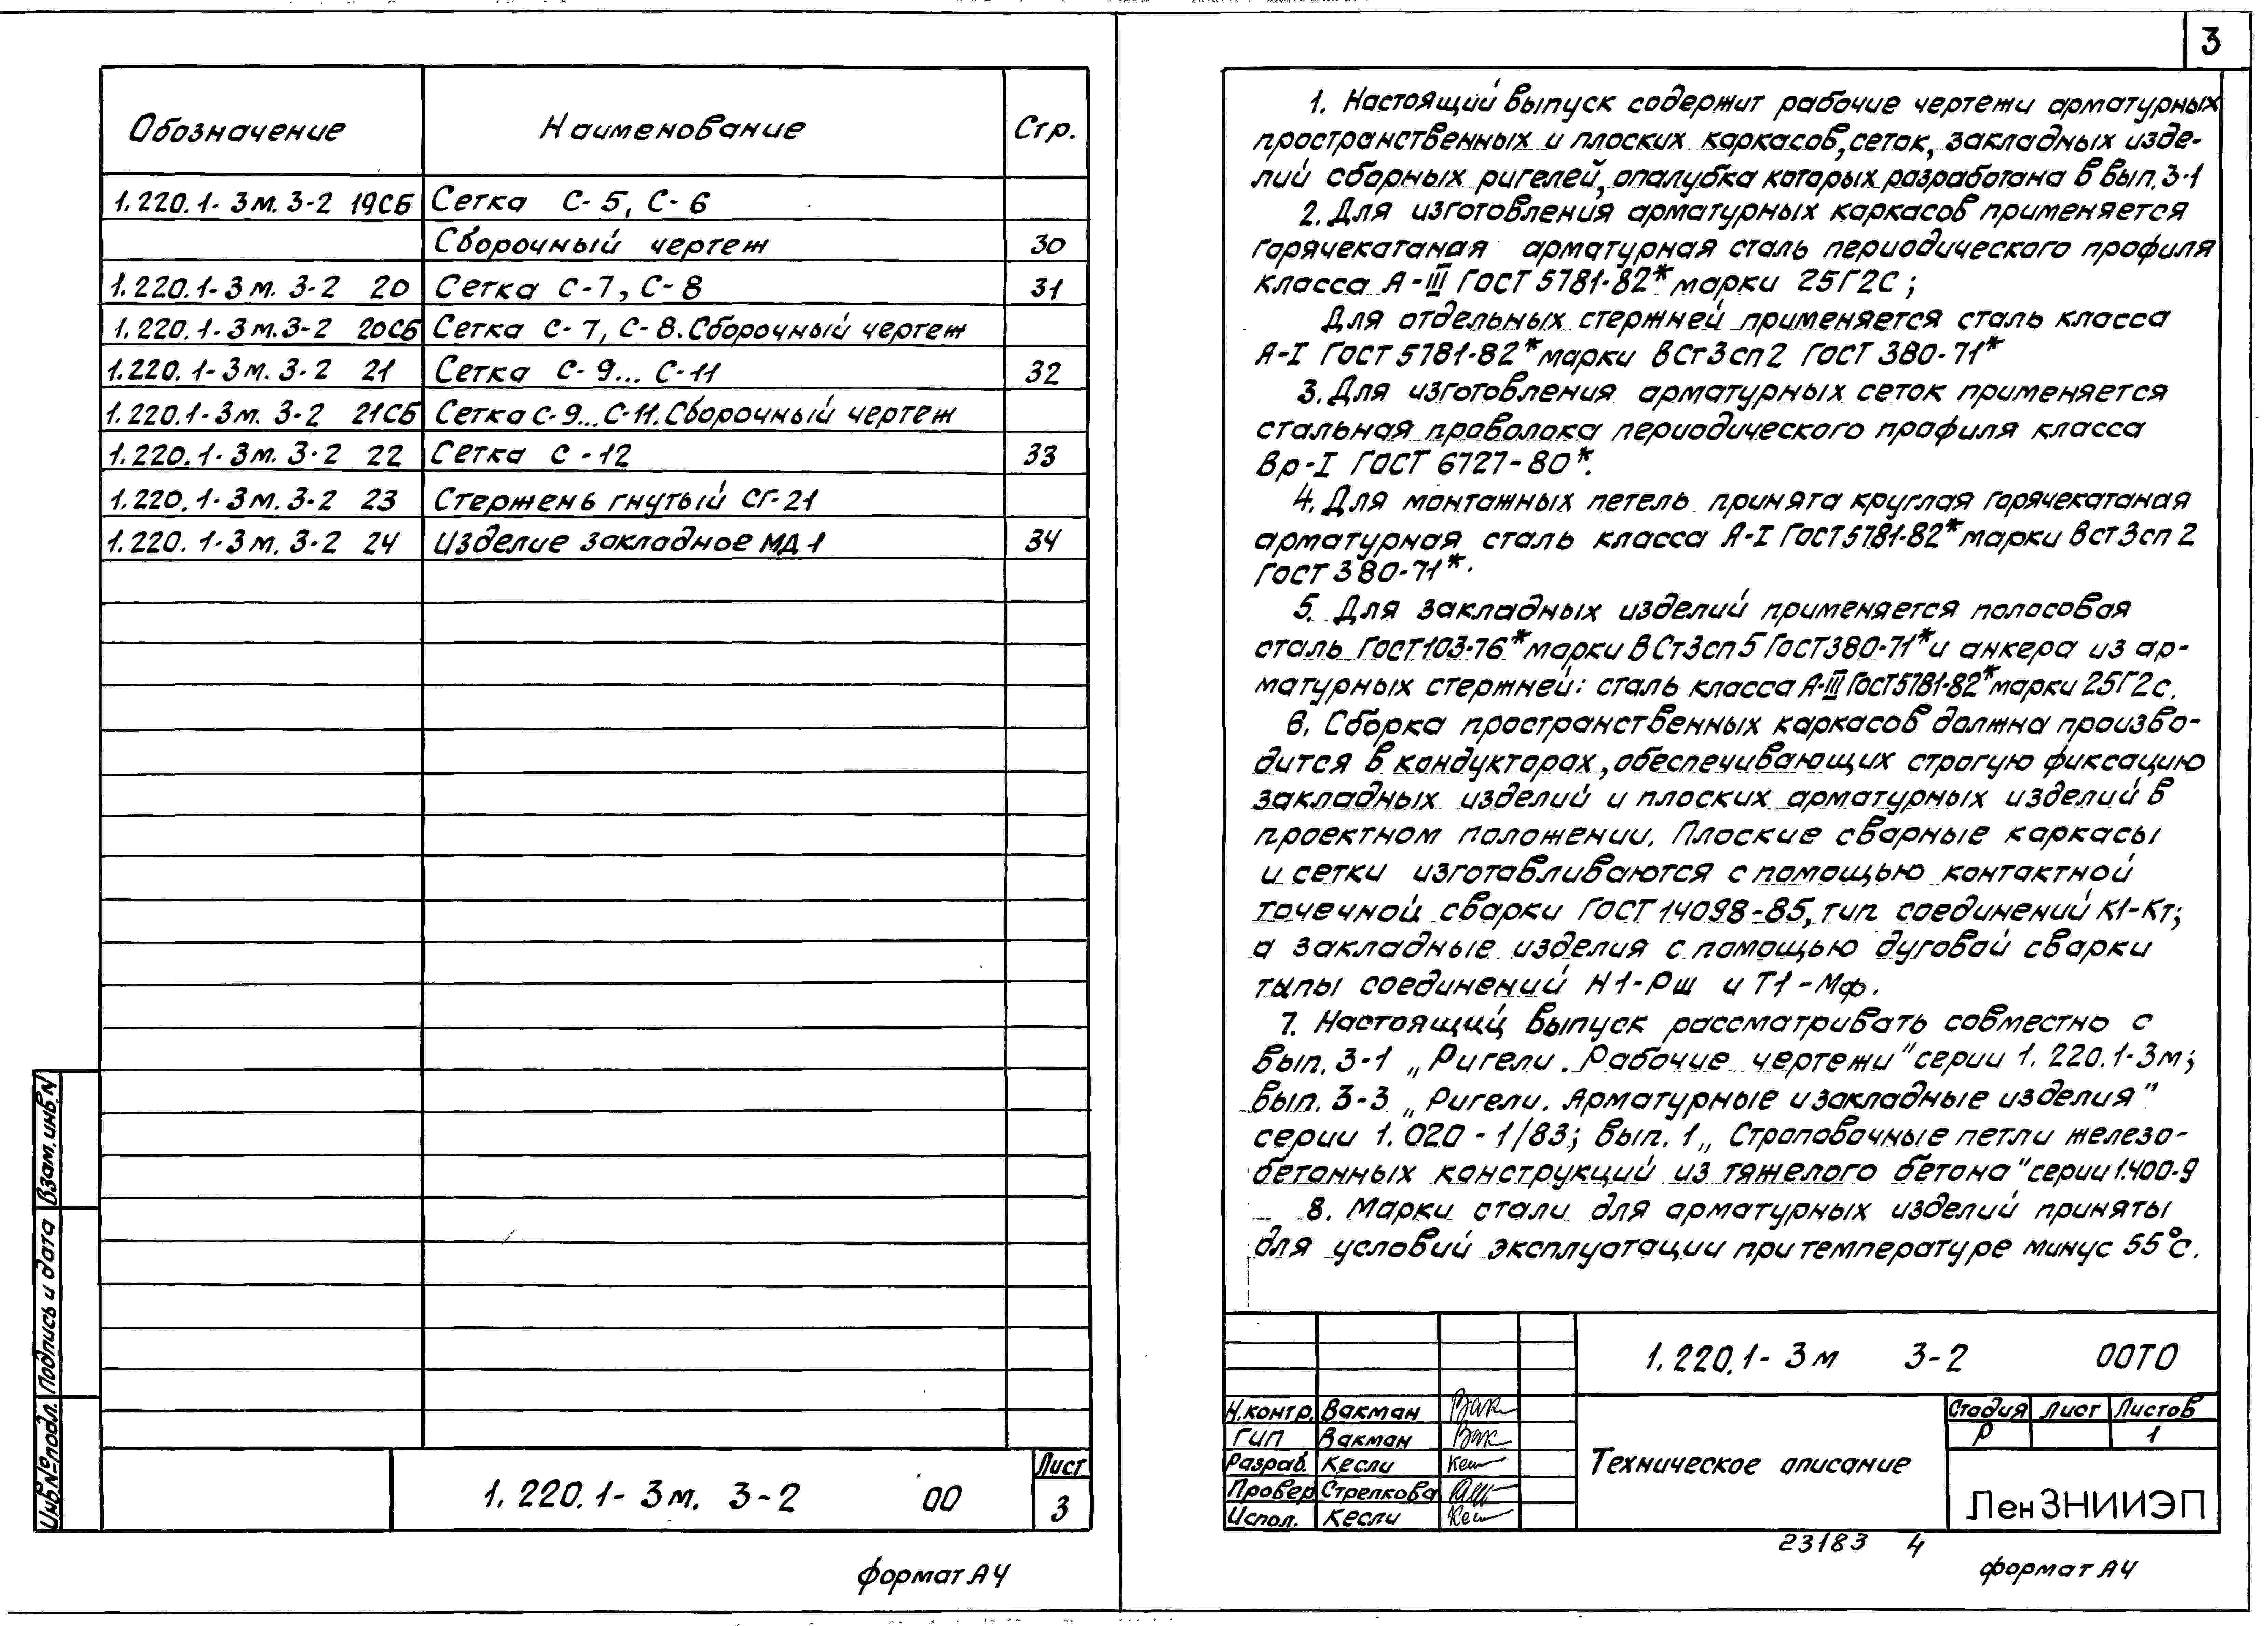 Обозначение Наименование Стр.
1.220.1-3м.3-2 19СБ Сетка С-5, С-6
Сборочный чертеж 30
1.220.1-3м.3-2 20 Сетка С-7, С-8 31
1.220.1-3м.3-2 20СБ Сетка С-7, С-8. Сборочный чертеж
1.220.1-3м.3-2 21 Сетка С-9... С-11 32
1.220.1-3м.3-2 21СБ Сетка С-9... С-11. Сборочный чертеж
1.220.1-3м.3-2 22 Сетка С-12 33
1.220.1-3м.3-2 23 Стержень гнутый СГ-21
1.220.1-3м.3-2 24 Изделие закладное МД1 34
Взам. инв. N
Подпись и дата
Инв. № подл.
1.220.1-3м. 3-2 00
Лист
3
формат А4
3
1. Настоящий выпуск содержит рабочие чертежи арматурных
пространственных и плоских каркасов, сеток, закладных изде-
лий сборных ригелей, опалубка которых разработана в вып. 3-1
2. Для изготовления арматурных каркасов применяется
горячекатаная арматурная сталь периодического профиля
класса А-III ГОСТ 5781-82* марки 25Г2С;
Для отдельных стержней применяется сталь класса
А-I ГОСТ 5781-82* марки ВСт3сп2 ГОСТ 380-71*
3. Для изготовления арматурных сеток применяется
стальная проволока периодического профиля класса
Вр-I ГОСТ 6727-80*.
4. Для монтажных петель принята круглая горячекатаная
арматурная сталь класса А-I ГОСТ 5781-82* марки Вст3сп2
ГОСТ 380-71*.
5. Для закладных изделий применяется полосовая
сталь ГОСТ 103-76* марки ВСт3сп5 ГОСТ 380-71* и анкера из ар-
матурных стержней: сталь класса А-III ГОСТ 5781-82* марки 25Г2с.
6. Сборка пространственных каркасов должна произво-
дится в кондукторах, обеспечивающих строгую фиксацию
закладных изделий и плоских арматурных изделий в
проектном положении. Плоские сварные каркасы
и сетки изготавливаются с помощью контактной
точечной сварки ГОСТ 14098-85, тип соединений К1-Кт;
а закладные изделия с помощью дуговой сварки
типы соединений Н1-Рш и Т1-Мф.
7. Настоящий выпуск рассматривать совместно с
вып. 3-1 „Ригели. Рабочие чертежи" серии 1.220.1-3м;
вып. 3-3 „Ригели. Арматурные и закладные изделия"
серии 1.020-1/83; вып. 1 „Строповочные петли железо-
бетонных конструкций из тяжелого бетона" серии 1.400-9
8. Марки стали для арматурных изделий приняты
для условий эксплуатации при температуре минус 55°С.
1.220.1-3м 3-2 00ТО
Н.контр. Вакман
ГИП Вакман
Разраб. Кесли
Провер Стрелкова
Испол. Кесли
Техническое описание
Стадия Лист Листов
Р 1
ЛенЗНИИЭП
23183 4
формат А4